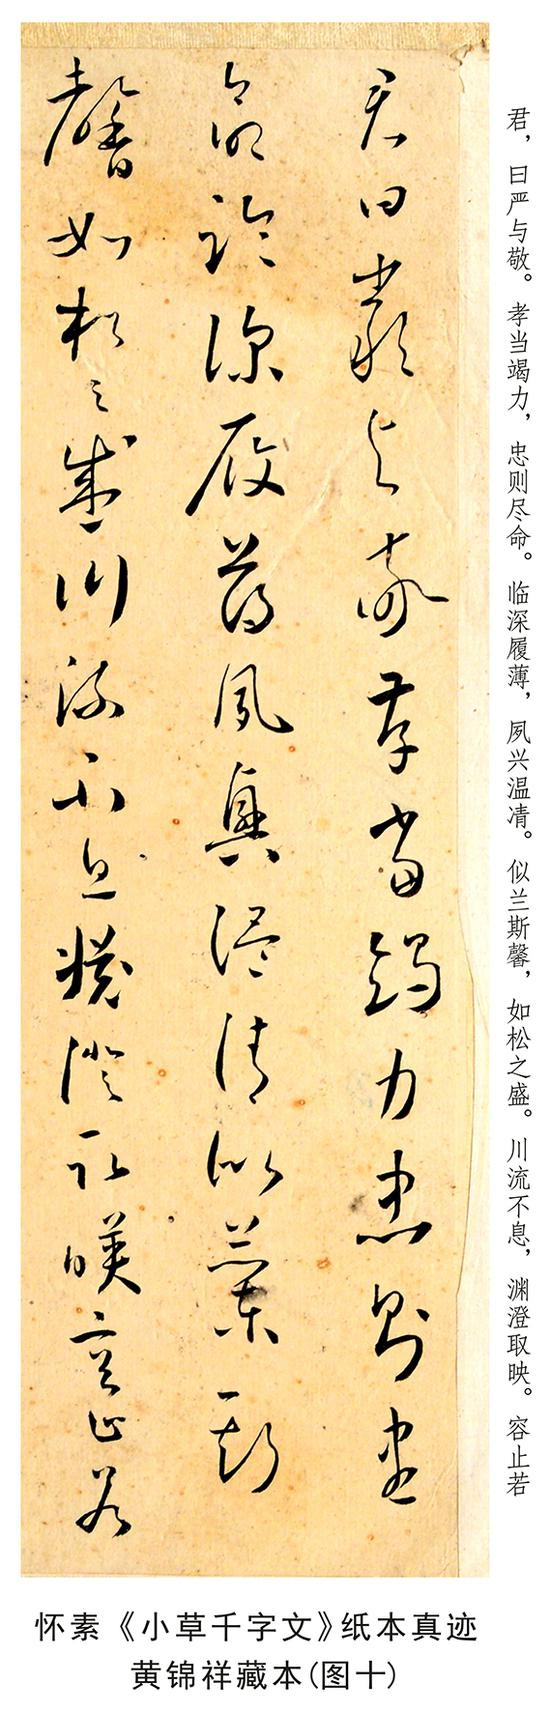 君，曰严与敬。孝当竭力，忠则尽命。临深履薄，夙兴温凊。似兰斯馨，如松之盛。川流不息，渊澄取映。容止若
君曰嚴与敬孝當竭力忠則盡
命臨深履薄夙興温清似蘭斯
馨如松之盛川流不息淵澄取映容止若
怀素《小草千字文》纸本真迹
黄锦祥藏本(图十)